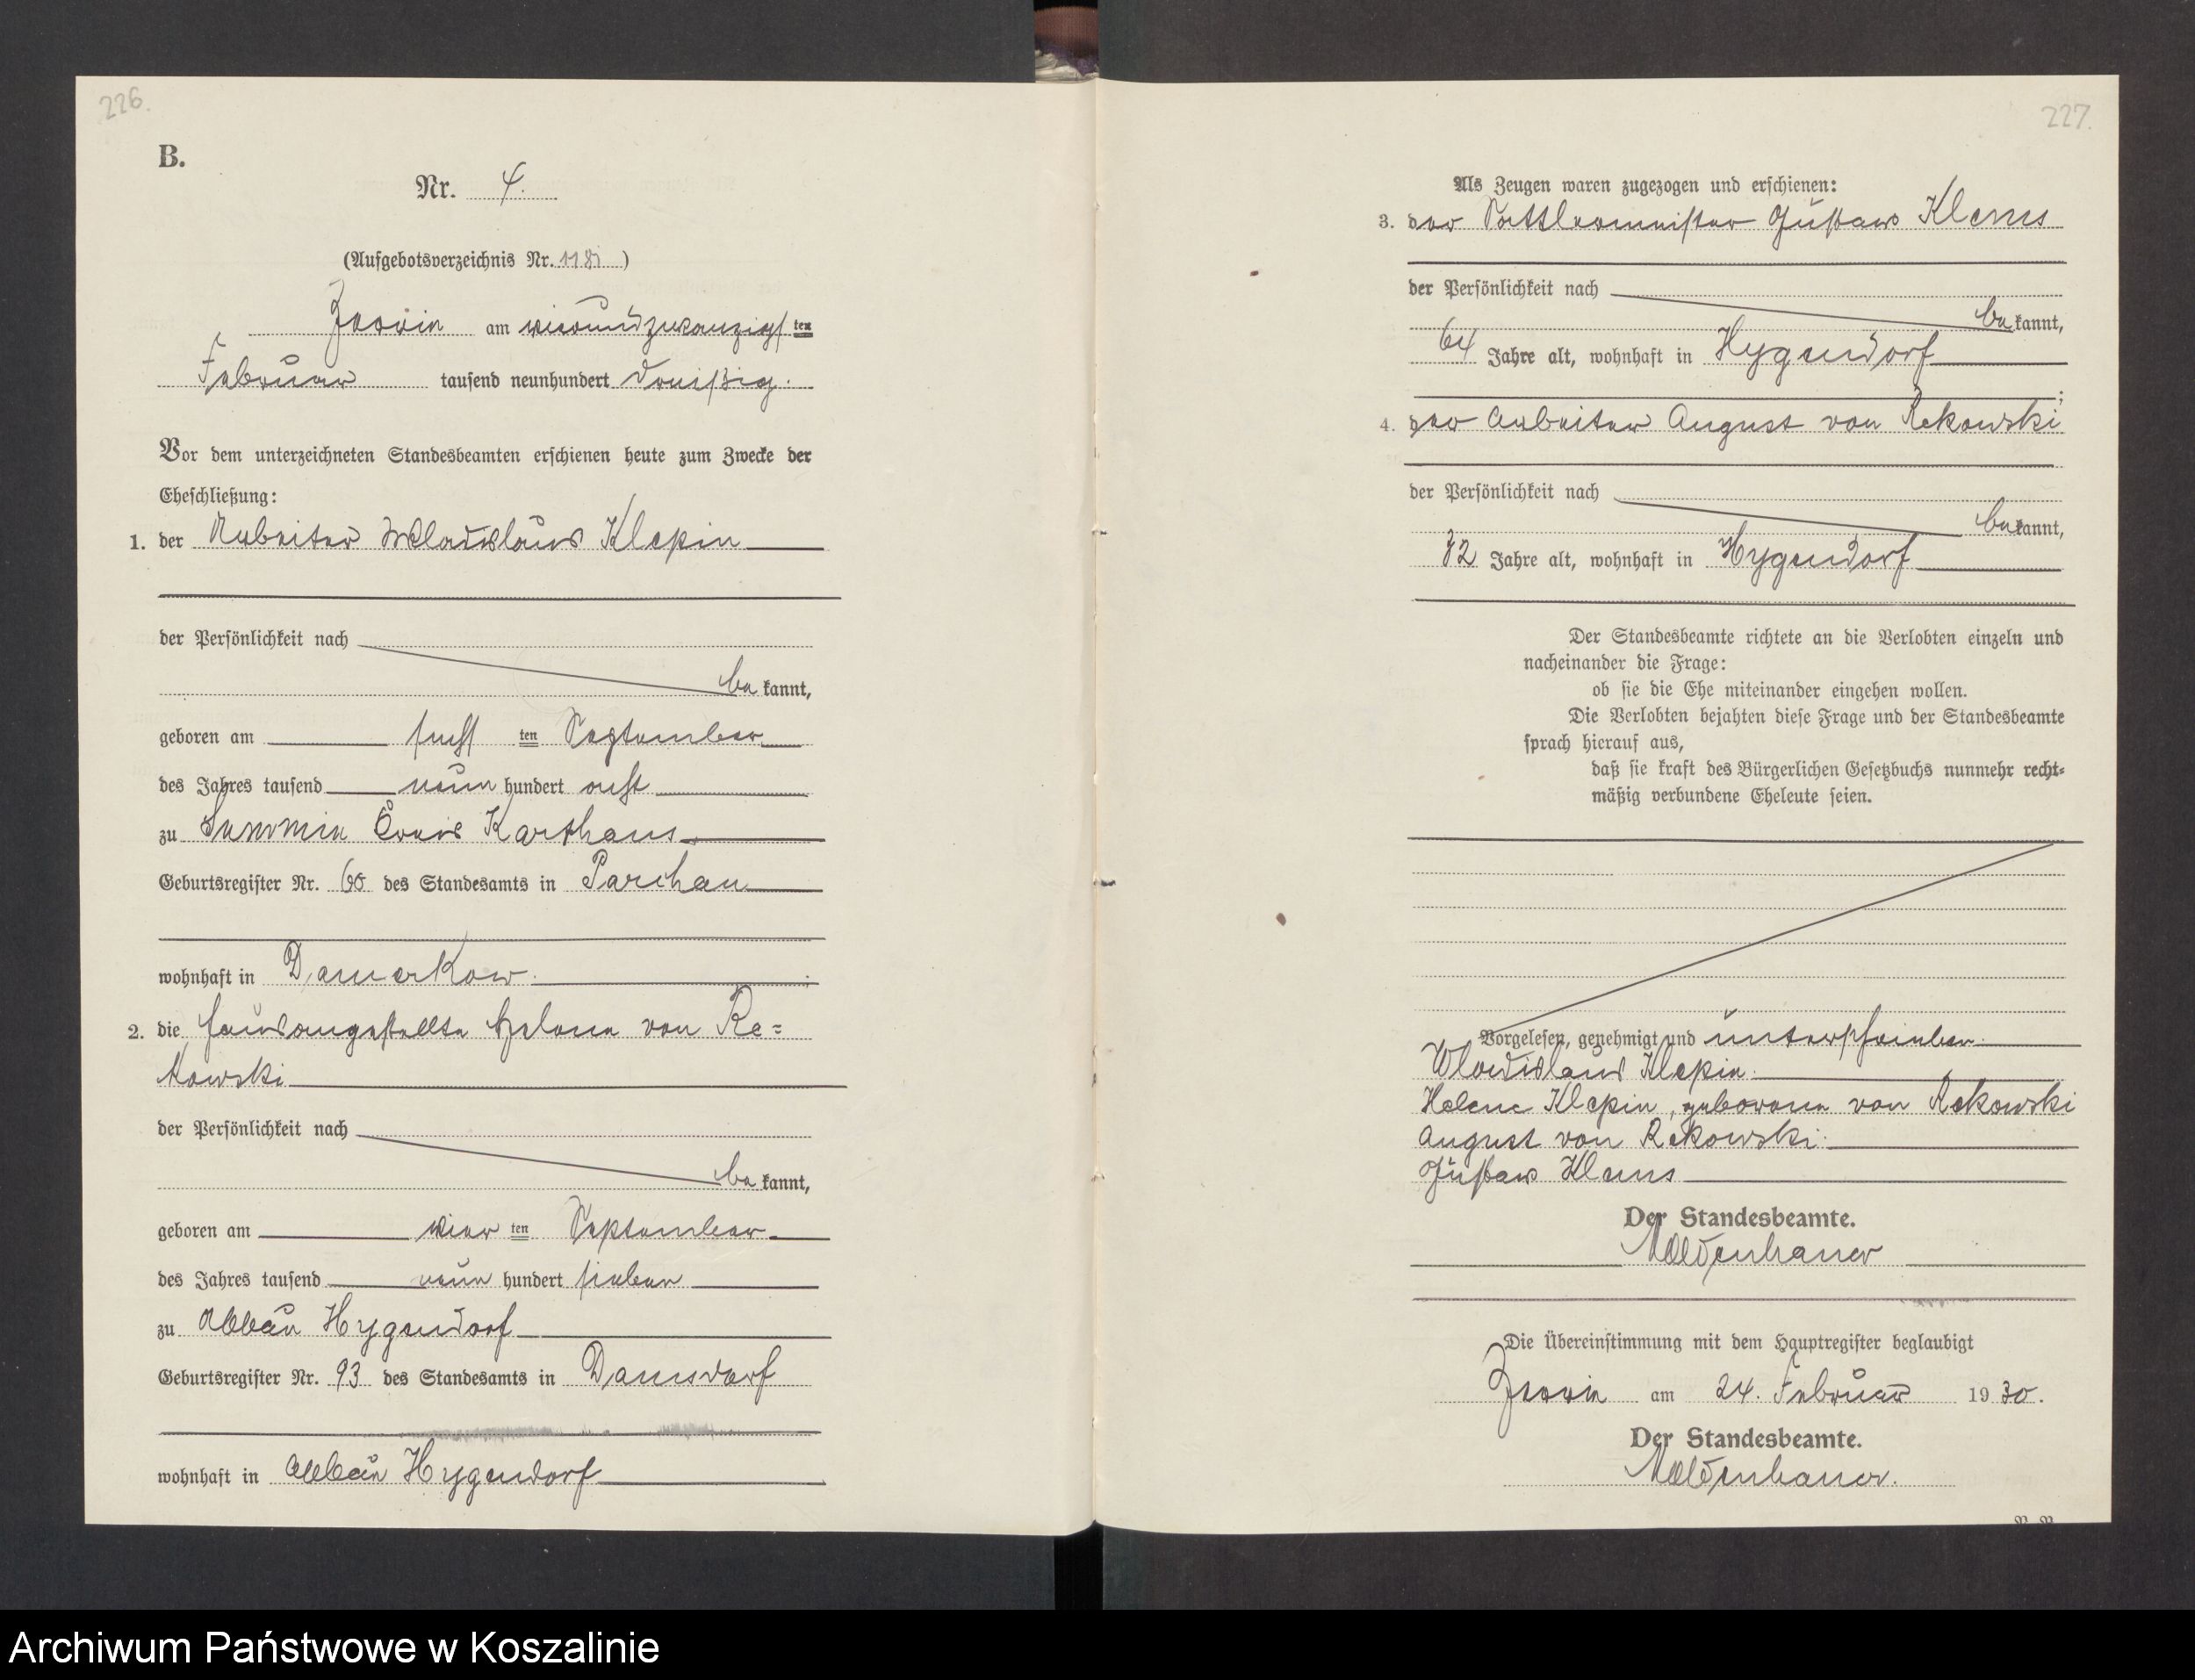 226.
B.
Nr. 4.
(Aufgebotsverzeichnis Nr. )
am vierundzwanzigsten
Februar tausend neunhundert dreißig.
Vor dem unterzeichneten Standesbeamten erschienen heute zum Zwecke der
Eheschließung:
1. der Arbeiter Wladislaus Klepin
der Persönlichkeit nach
be kannt,
geboren am sechs ten September
des Jahres tausend neun hundert acht
zu Summin Kreis Karthaus
Geburtsregister Nr. 60 des Standesamts in Parchau
wohnhaft in Damerkow.
2. die Hausangestellte Helene von Re=
kowski
der Persönlichkeit nach
be kannt,
geboren am vier ten September
des Jahres tausend neun hundert sieben
zu Abbau Hygendorf
Geburtsregister Nr. 93 des Standesamts in Damsdorf
wohnhaft in Abbau Hygendorf
227.
Als Zeugen waren zugezogen und erschienen:
3. der Sattlermeister Gustav Klems
der Persönlichkeit nach
be kannt,
64 Jahre alt, wohnhaft in Hygendorf
;
4. der Arbeiter August von Rekowski
der Persönlichkeit nach
be kannt,
32 Jahre alt, wohnhaft in Hygendorf
Der Standesbeamte richtete an die Verlobten einzeln und
nacheinander die Frage:
ob sie die Ehe miteinander eingehen wollen.
Die Verlobten bejahten diese Frage und der Standesbeamte
sprach hierauf aus,
daß sie kraft des Bürgerlichen Gesetzbuchs nunmehr recht-
mäßig verbundene Eheleute seien.
Vorgelesen, genehmigt und unterschrieben
Wladislaus Klepin.
Helene Klepin, geborene von Rekowski
August von Rekowski.
Gustav Klems
Der Standesbeamte.
Moldenhauer
Die Übereinstimmung mit dem Hauptregister beglaubigt
am 24. Februar 1930.
Der Standesbeamte.
Moldenhauer.
Archiwum Państwowe w Koszalinie